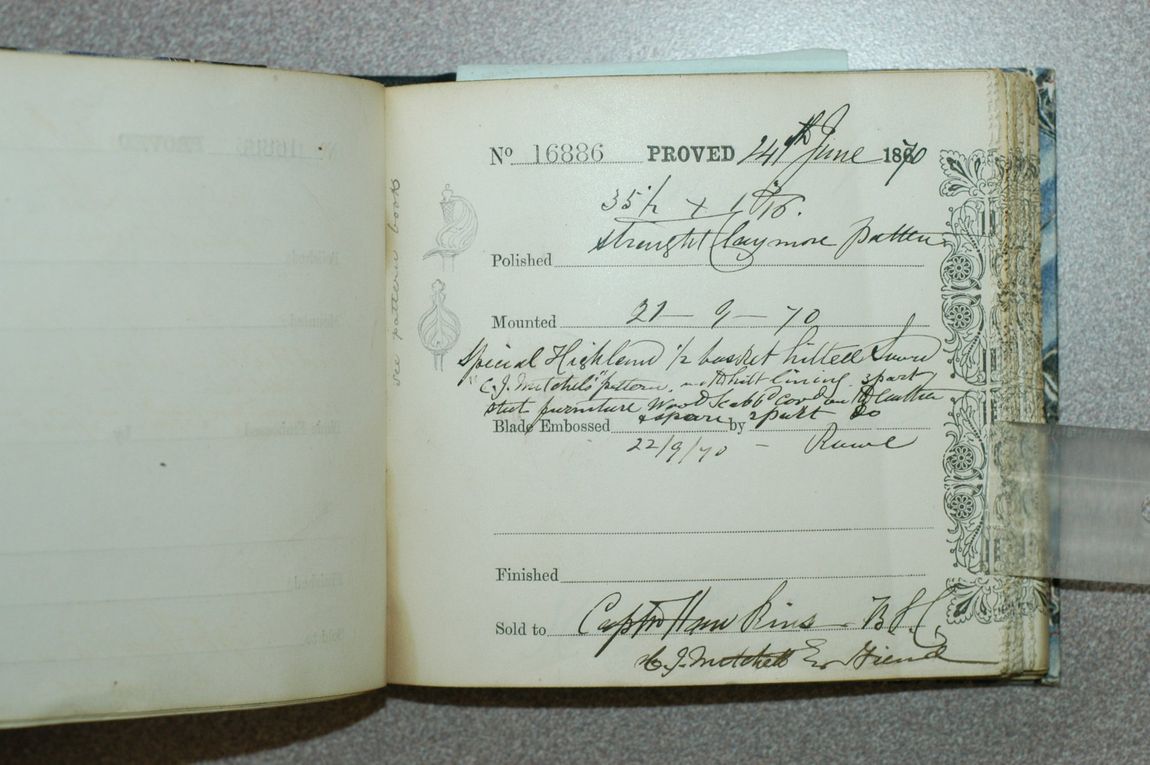 see pattern book
No 16886 PROVED 24th June 1870
35 1/2 x 1 1/8.
straight Claymore pattern
Polished
Mounted 21 - 9 - 70
Special Highland 1/2 basket hilted Sword
"C. J. Mitchels" pattern, hilt lining, spart
steel furniture Wood Scabbd cord on leather
Blade Embossed & spare by 2 part do
22/9/70 -
Finished
Sold to Captn Hawkins - B.S.C,
C. J. Mitchell